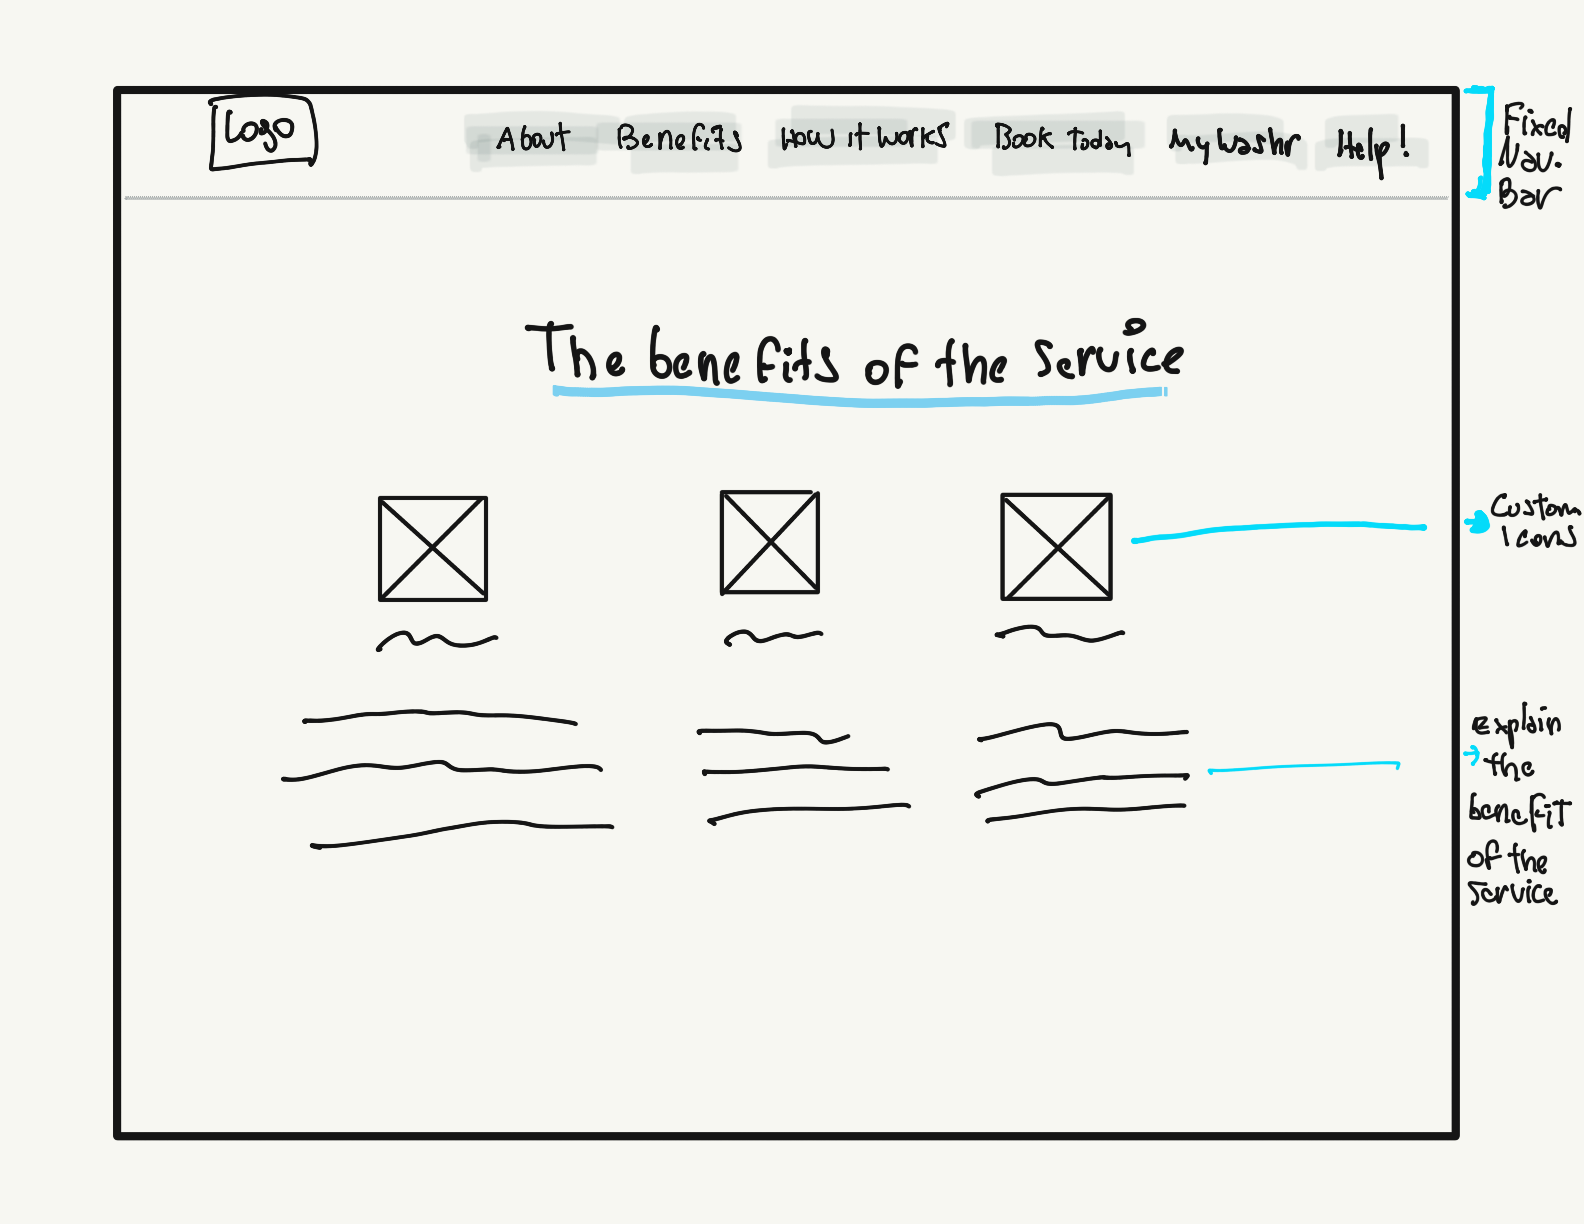 Logo
About Benefits How it works Book Today My Washr Help!
Fixed
Nav.
Bar
The benefits of the service
Custom
Icons
explain
the
benefit
of the
service